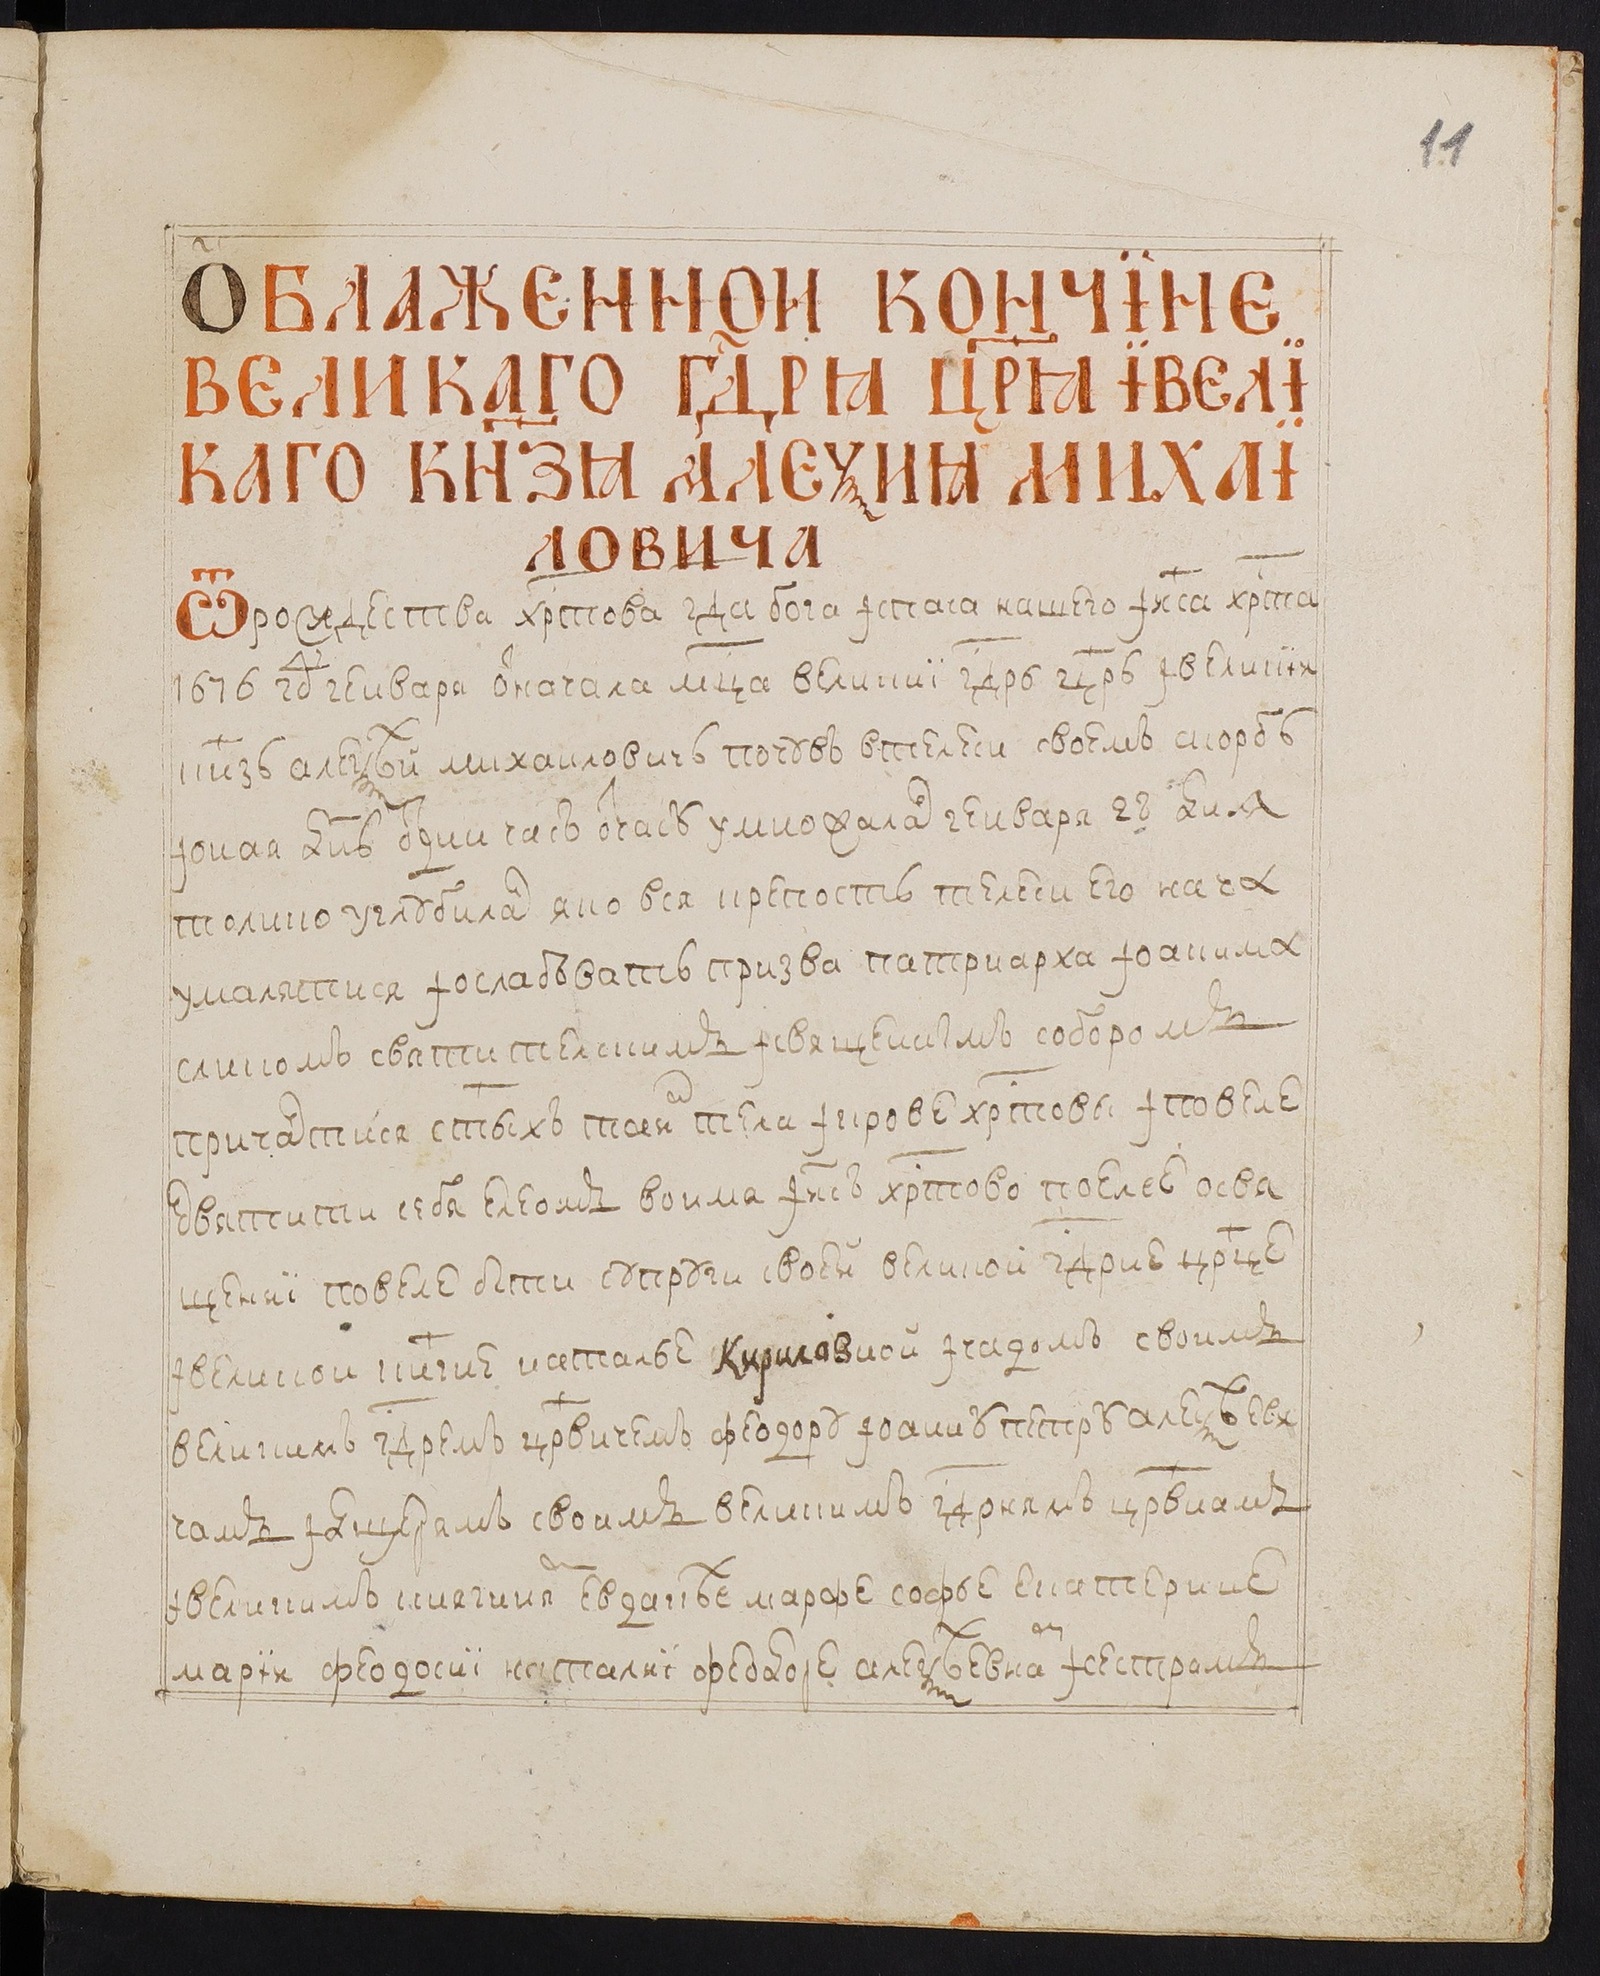 11
О БЛАЖЕННОИ КОНЧЇНЕ
ВЕЛИКАГО ГДРꙖ ЦРꙖ ЇВЕЛЇ
КАГО КНЗꙖ АЛЕѮИꙖ МИХАЇ
ЛОВИЧА
Ѿ рождества хрⷭтова гда бога їспаса нашего їиса хрⷭта
1676 гоⷣ генваря ѿначала мⷭца великиї гдⷭрь црⷭь ївеликїи
кнзь алеѯѣй михаиловичь почувъ втелеси своемъ скорбь
їоная днь ѿдни часъ ѿчасꙋ умножалася генваря дня
толико углꙋбилася яко вся крепость телеси его нача
умалятися їослабѣвать призва патриарха їоакима
сликомъ святителскимъ їсвященнымъ соборомъ
причаститися стыхъ таин тела їкрове хрⷭтовы їповеле
ѡсвятити себя елеомъ воимя їисъ хрⷭтово поелеѡсвя
щениї повеле быти сꙋпрꙋги своей великой гдⷭрне црⷭце
ївеликои кнгне наталье Кириловной їчадомъ своимъ
великимъ гдⷭремъ црвичемъ феодорꙋ їоаннꙋ петрꙋ алеѯѣеви
чамъ їдщерямъ своимъ великимъ гдⷭрнямъ црвнамъ
ївеликимъ княгиням евдакѣе марфе софье екатерине
марїи феодосиї наталиї федоре алеѯѣевнам їсестрамъ